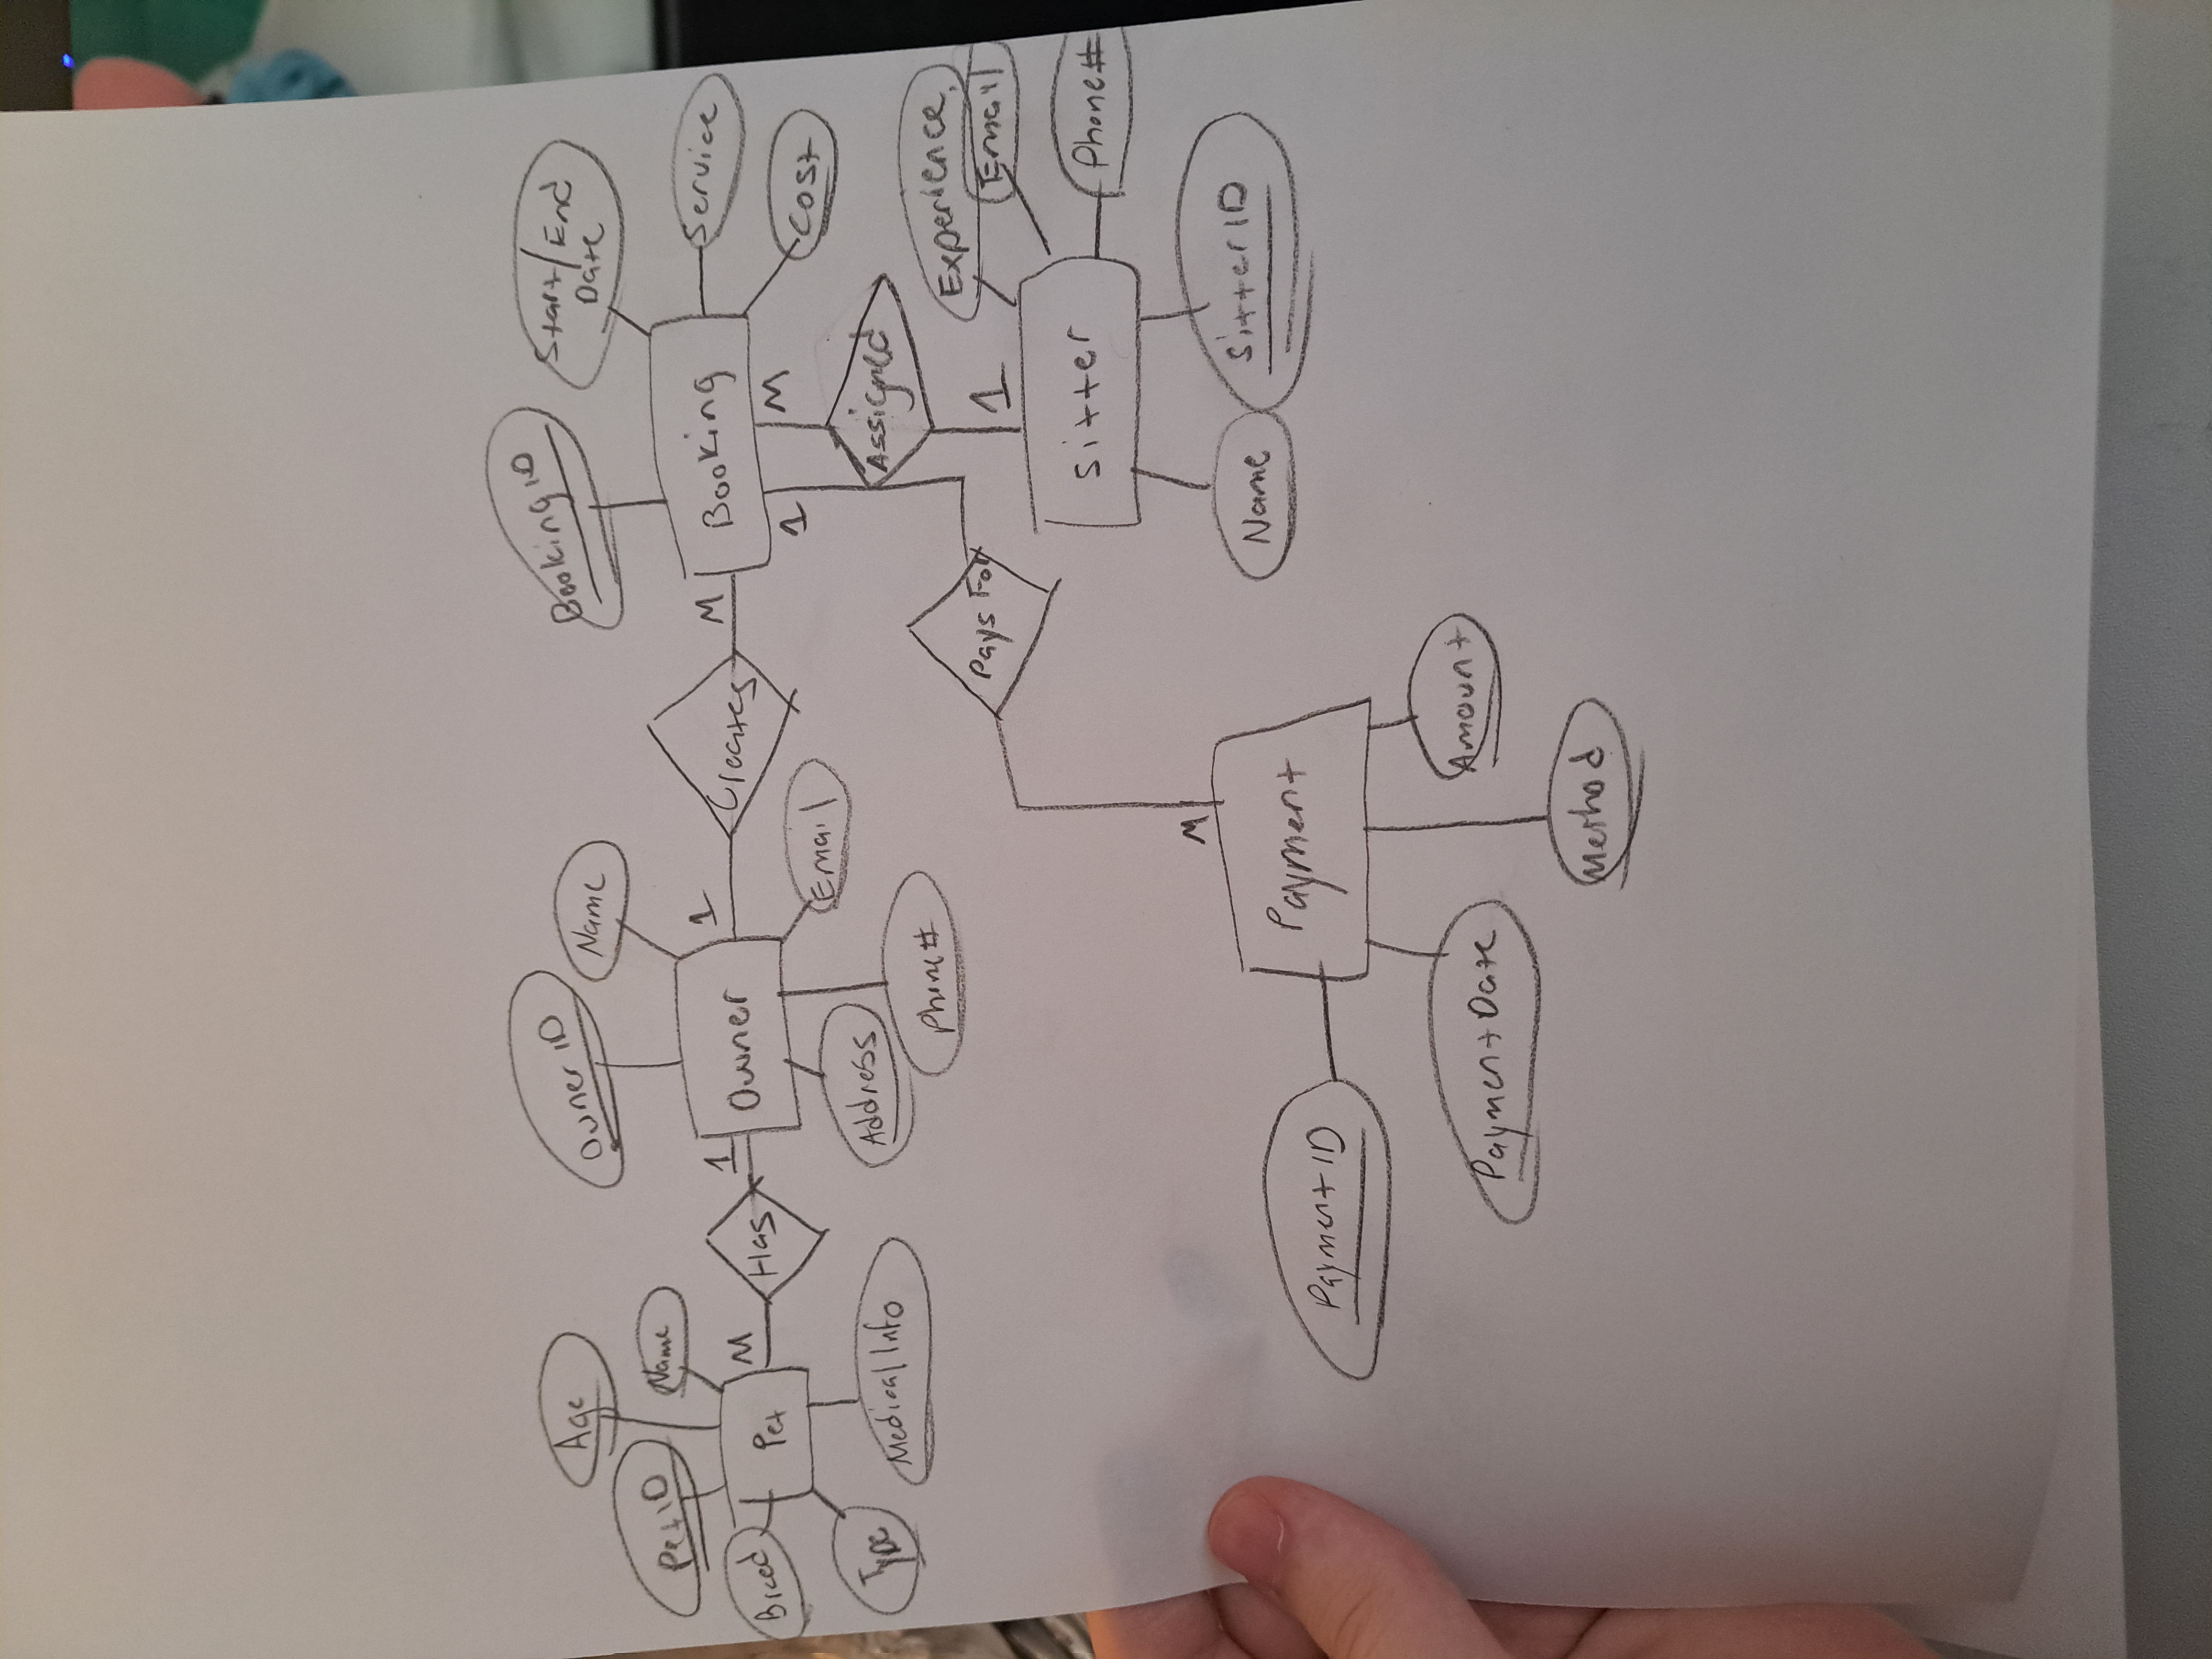 Age
Pet ID
Name
Breed
Pet
Type
Medical Info
M
Has
1
Owner ID
Name
Owner
Address
Phone#
Email
1
Creates
M
Booking ID
Start/End
Date
Booking
Service
Cost
1
M
Assigned
Pays For
1
Experience
Email
Sitter
Phone#
Name
Sitter ID
M
Payment
Payment ID
Payment Date
Amount
Method